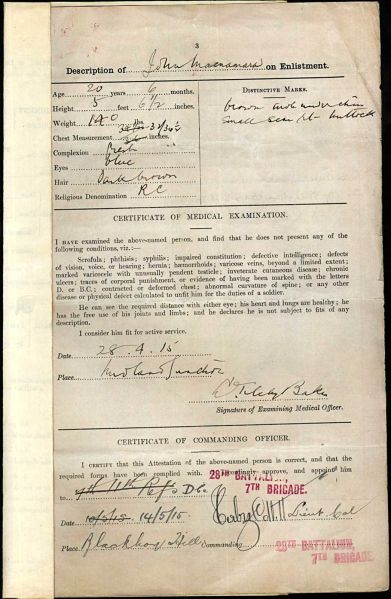 3
Description of John Macnamara on Enlistment.
Age 20 years 6 months.
Height 5 feet 6 1/2 inches.
Weight 140 lbs.
Chest Measurement inches.
Complexion Fresh
Eyes blue
Hair Dark brown
Religious Denomination R.C
DISTINCTIVE MARKS.
brown under chin
small scar buttock
CERTIFICATE OF MEDICAL EXAMINATION.
I HAVE examined the above-named person, and find that he does not present any of the
following conditions, viz.:—
Scrofula; phthisis; syphilis; impaired constitution; defective intelligence; defects
of vision, voice, or hearing; hernia; hæmorrhoids; varicose veins, beyond a limited extent;
marked varicocele with unusually pendent testicle; inveterate cutaneous disease; chronic
ulcers; traces of corporal punishment, or evidence of having been marked with the letters
D. or B.C.; contracted or deformed chest; abnormal curvature of spine; or any other
disease or physical defect calculated to unfit him for the duties of a soldier.
He can see the required distance with either eye; his heart and lungs are healthy; he
has the free use of his joints and limbs; and he declares he is not subject to fits of any
description.
I consider him fit for active service.
Date 28.4.15
Place Midland Junction
Signature of Examining Medical Officer.
CERTIFICATE OF COMMANDING OFFICER.
I CERTIFY that this Attestation of the above-named person is correct, and that the
required forms have been complied with. I accordingly approve, and appoint him
to 28TH BATTALION,
7TH BRIGADE.
Date 10/5/15 14/5/15 Lieut Col
Place Blackboy Hill Commanding 28TH BATTALION,
7TH BRIGADE.